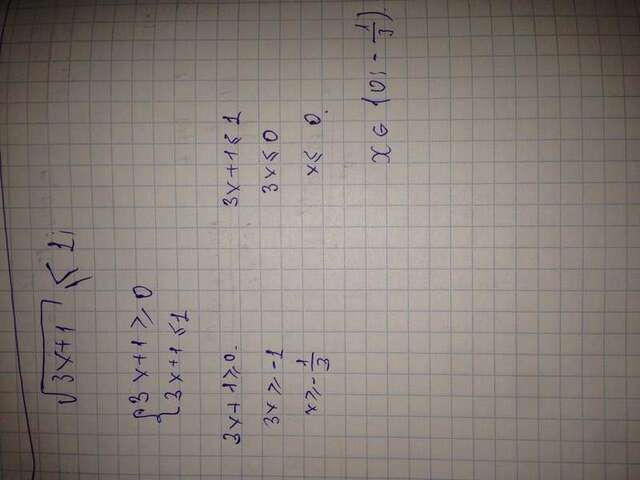 √3x+1 ≤ 1;
{3x+1 ≥ 0
{3x+1 ≤ 1
3x+1 ≥ 0. 3x+1 ≤ 1
3x ≥ -1 3x ≤ 0
x ≥ -1/3 x ≤ 0.
x ∈ (0; -1/3).